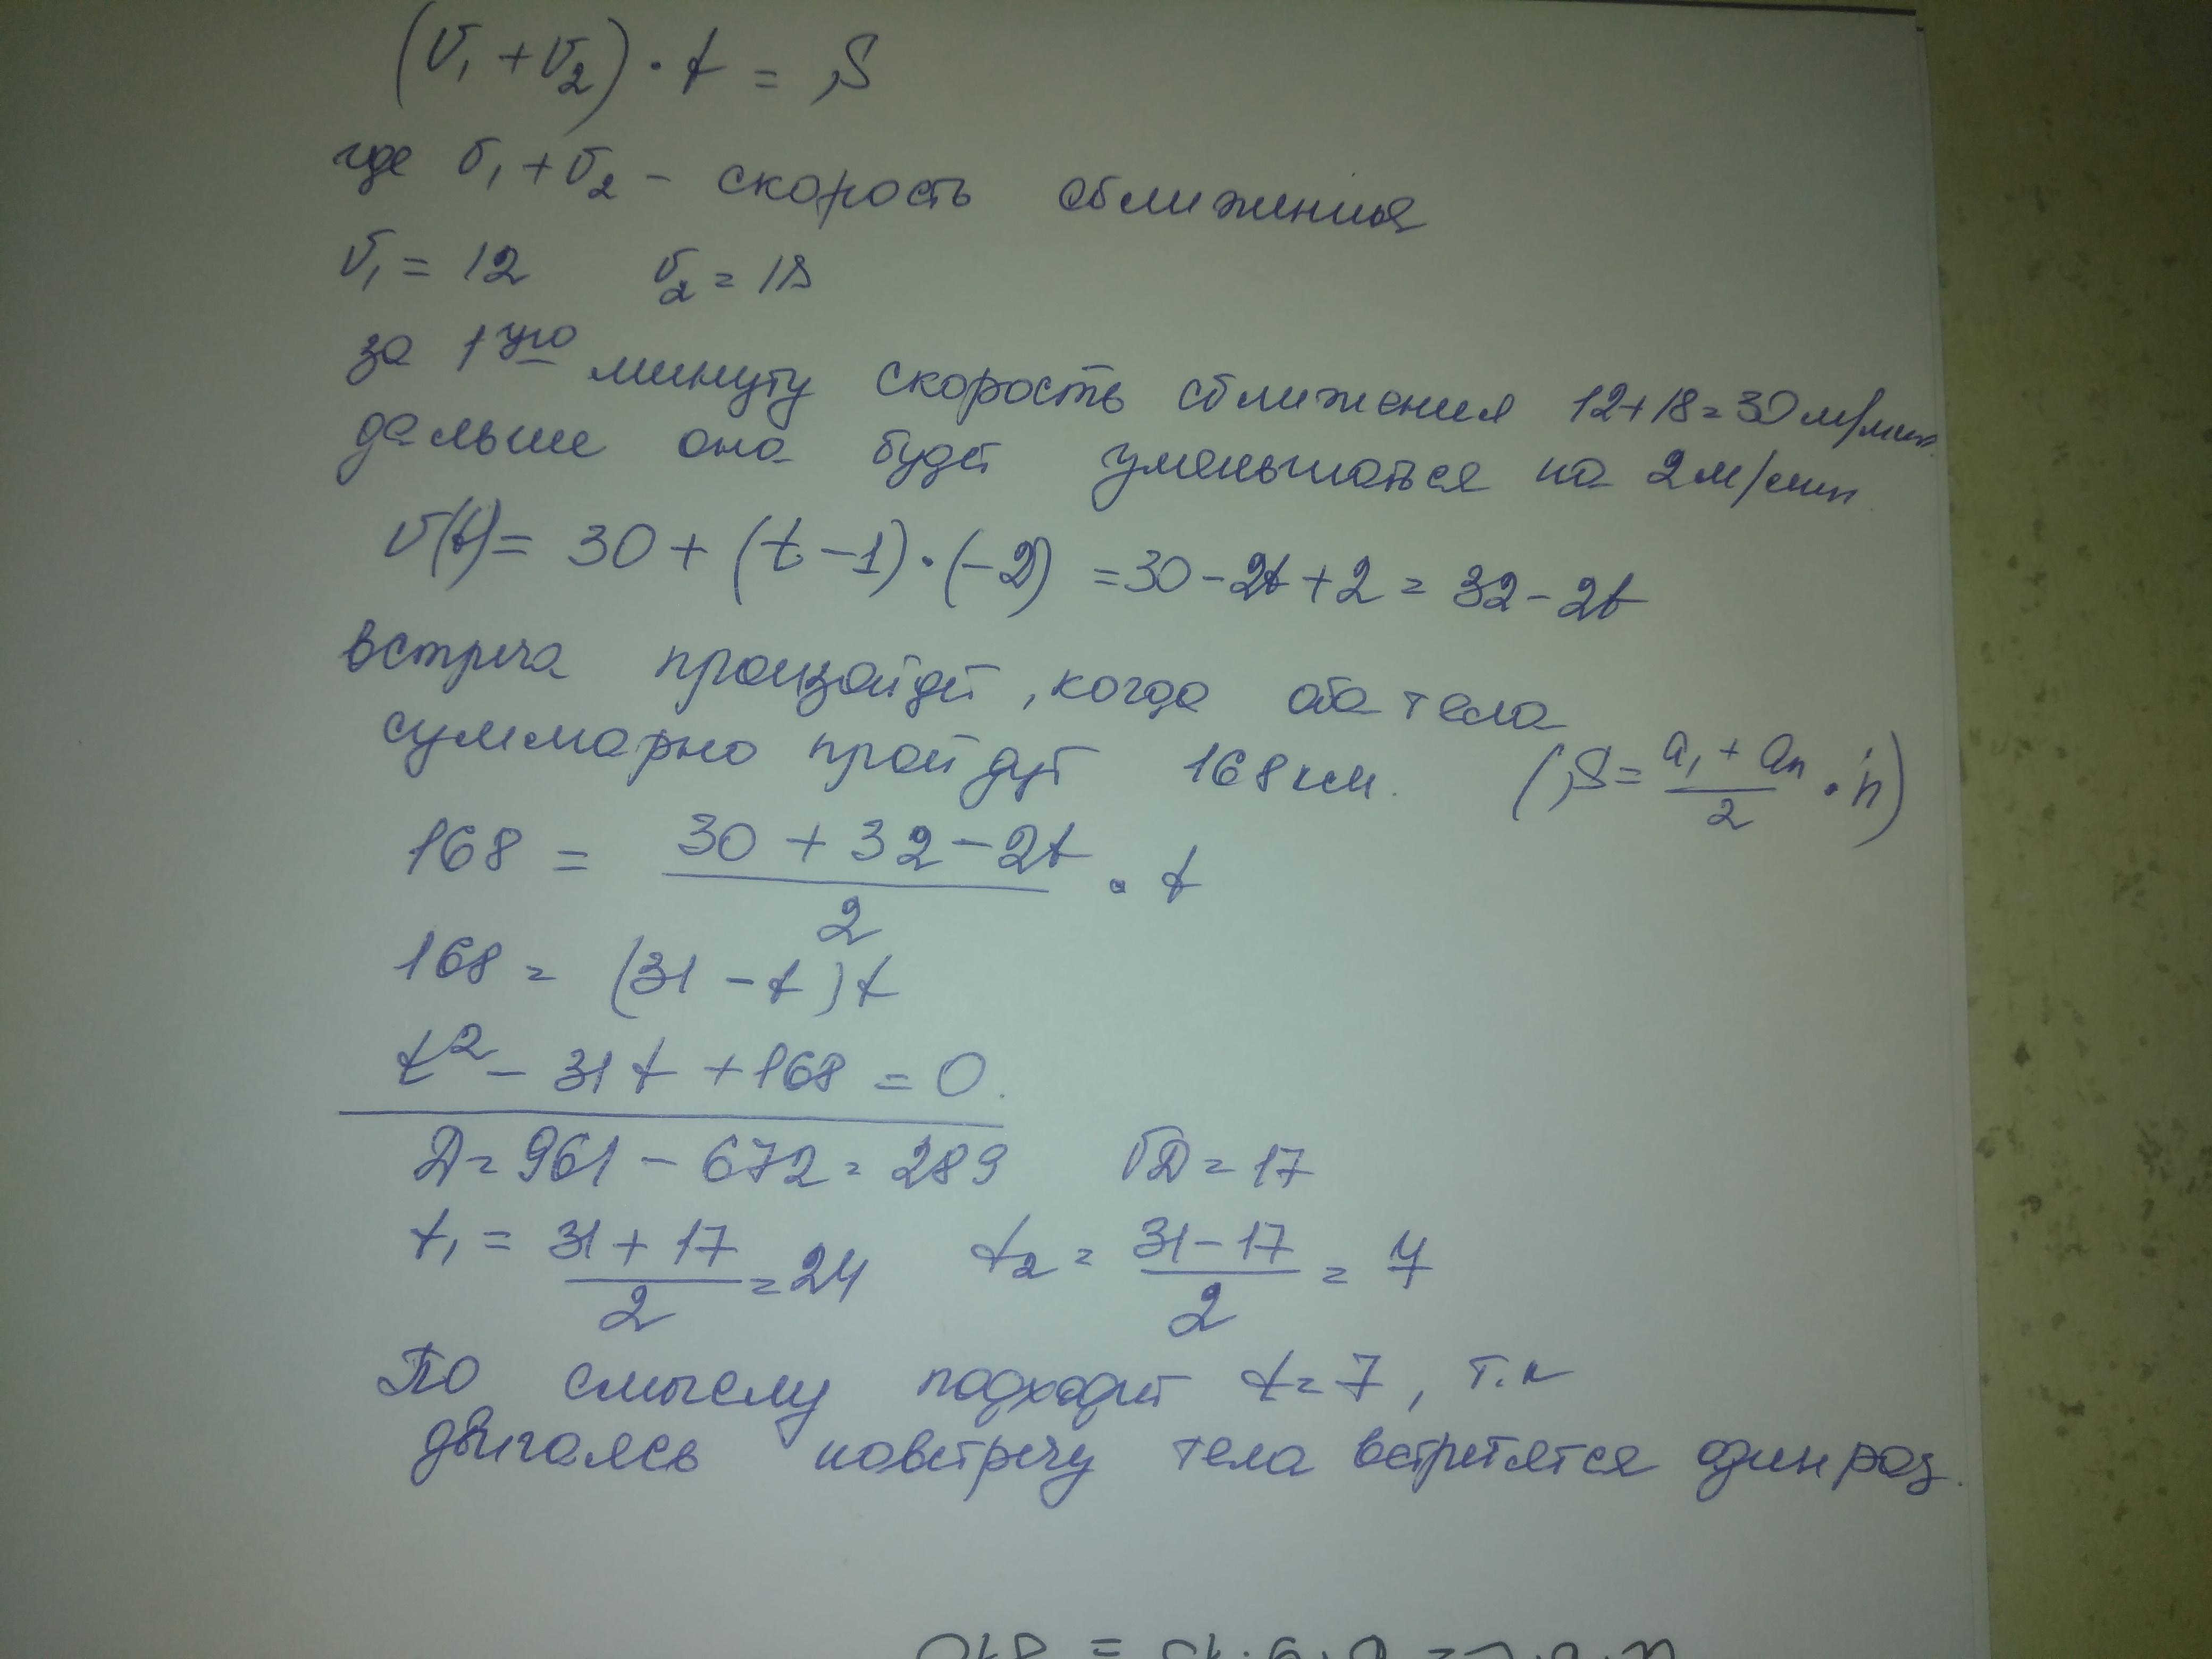 (v₁ + v₂) · t = S
где v₁ + v₂ – скорость сближения
v₁ = 12 v₂ = 18
за 1ую минуту скорость сближения 12+18=30 м/мин.
дальше она будет уменьшаться на 2 м/мин
v(t) = 30 + (t – 1) · (–2) = 30 – 2t + 2 = 32 – 2t
встреча произойдет, когда оба тела
суммарно пройдут 168 км. (S = (a₁ + aₙ)/2 · n)
168 = (30 + 32 – 2t)/2 · t
168 = (31 – t)t
t² – 31t + 168 = 0.
D = 961 – 672 = 289 √D = 17
t₁ = (31 + 17)/2 = 24 t₂ = (31 – 17)/2 = 7
По смыслу подходит t = 7, т.к
двигаясь навстречу тела встретятся один раз.